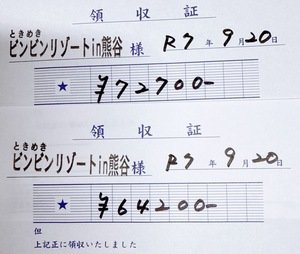 領収証
ときめき
ビンビンリゾートin熊谷 様 R7年9月20日
★ ¥72700-
領収証
ときめき
ビンビンリゾートin熊谷 様 R7年9月20日
★ ¥64200-
但
上記正に領収いたしました